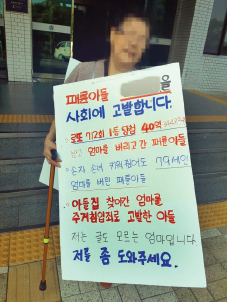 패륜아들 을
사회에 고발합니다.
로또 772회 1등 당첨 40억
엄마를 버리고 간 패륜아들
손자 손녀 키워줬더니 79세인
엄마를 버린 패륜아들
아들집 찾아간 엄마를
주거침입죄로 고발한 아들
저는 글도 모르는 엄마입니다
저를 좀 도와주세요.